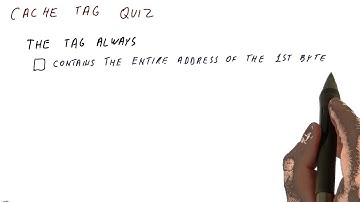 CACHE TAG QUIZ
THE TAG ALWAYS
CONTAINS THE ENTIRE ADDRESS OF THE 1ST BYTE